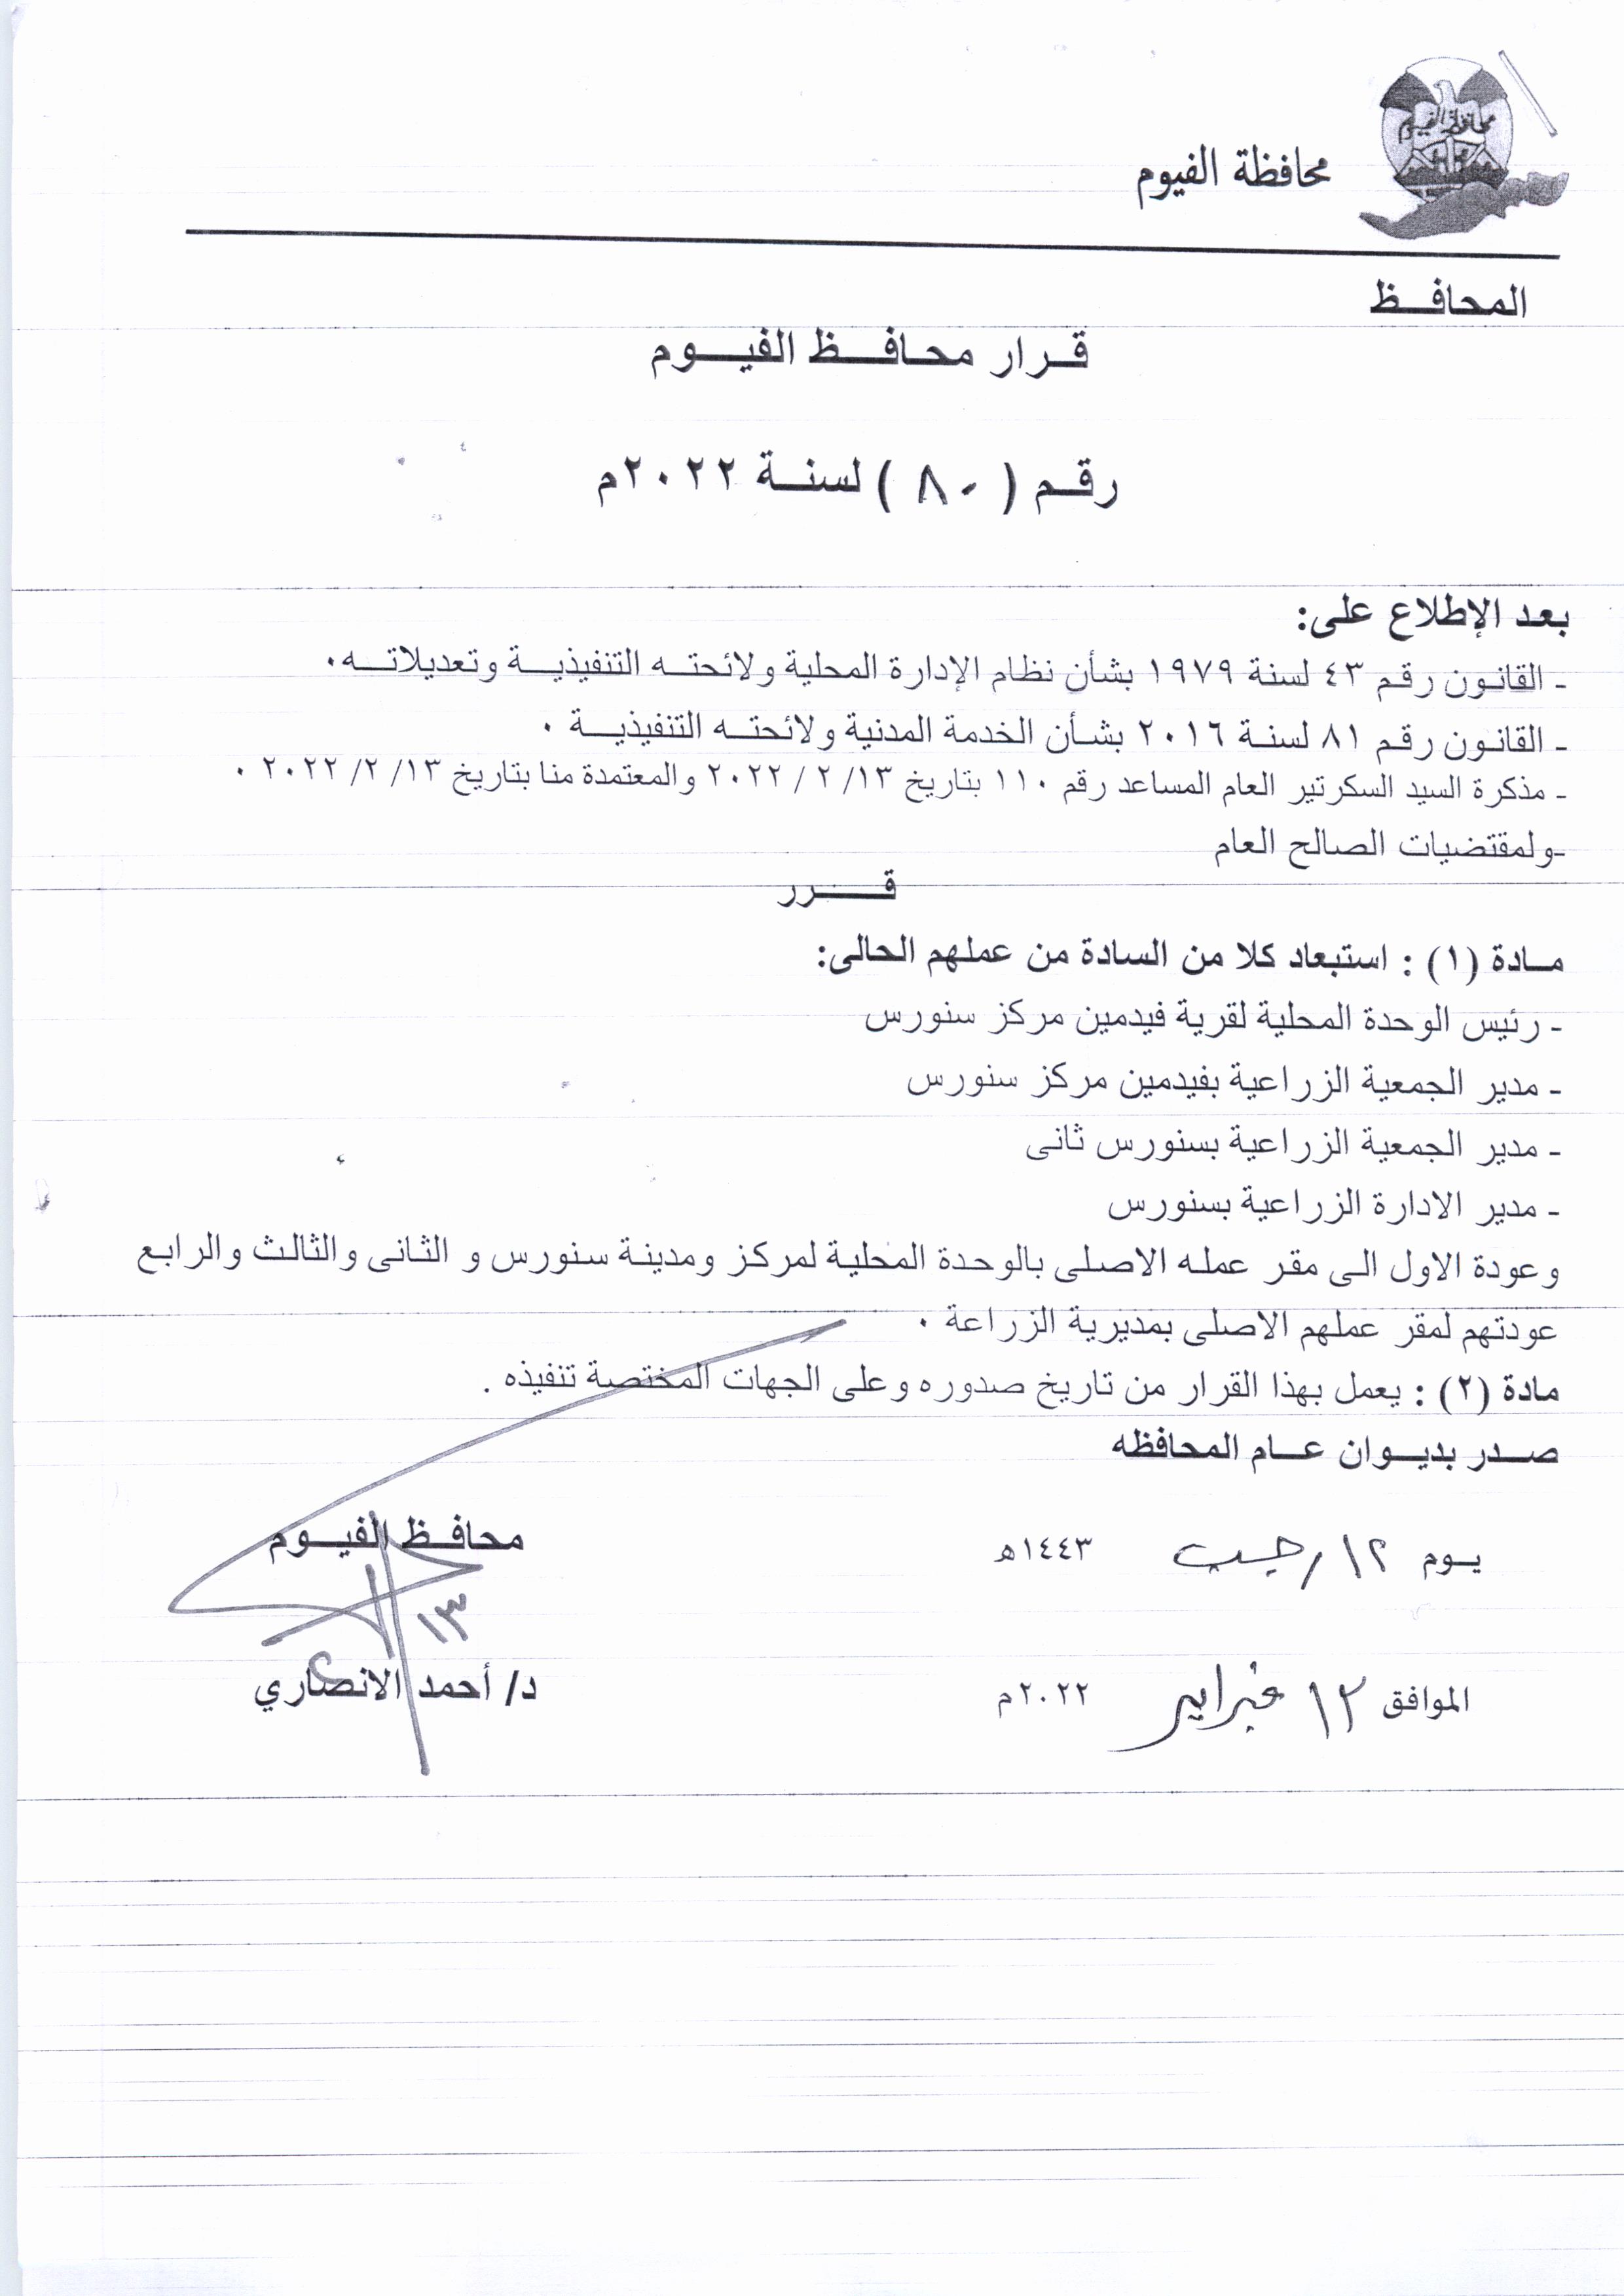 محافظة الفيوم
محافظة الفيوم
المحافظ
قرار محافظ الفيوم
رقم ( ٨٠ ) لسنة ٢٠٢٢م
بعد الإطلاع على:
ـ القانون رقم ٤٣ لسنة ١٩٧٩ بشأن نظام الإدارة المحلية ولائحته التنفيذية وتعديلاته٠
ـ القانون رقم ٨١ لسنة ٢٠١٦ بشأن الخدمة المدنية ولائحته التنفيذية ٠
ـ مذكرة السيد السكرتير العام المساعد رقم ١١٠ بتاريخ ١٣/ ٢ / ٢٠٢٢ والمعتمدة منا بتاريخ ١٣/ ٢/ ٢٠٢٢ ٠
-ولمقتضيات الصالح العام
قرر
مادة (١) : استبعاد كلا من السادة من عملهم الحالى:
ـ رئيس الوحدة المحلية لقرية فيدمين مركز سنورس
ـ مدير الجمعية الزراعية بفيدمين مركز سنورس
ـ مدير الجمعية الزراعية بسنورس ثانى
ـ مدير الادارة الزراعية بسنورس
وعودة الاول الى مقر عمله الاصلى بالوحدة المحلية لمركز ومدينة سنورس و الثانى والثالث والرابع
عودتهم لمقر عملهم الاصلى بمديرية الزراعة ٠
مادة (٢) : يعمل بهذا القرار من تاريخ صدوره وعلى الجهات المختصة تنفيذه .
صدر بديوان عام المحافظه
يوم ١٢ رجب ١٤٤٣ه
الموافق ١٣ فبراير ٢٠٢٢م
محافظ الفيوم
د/ أحمد الانصاري